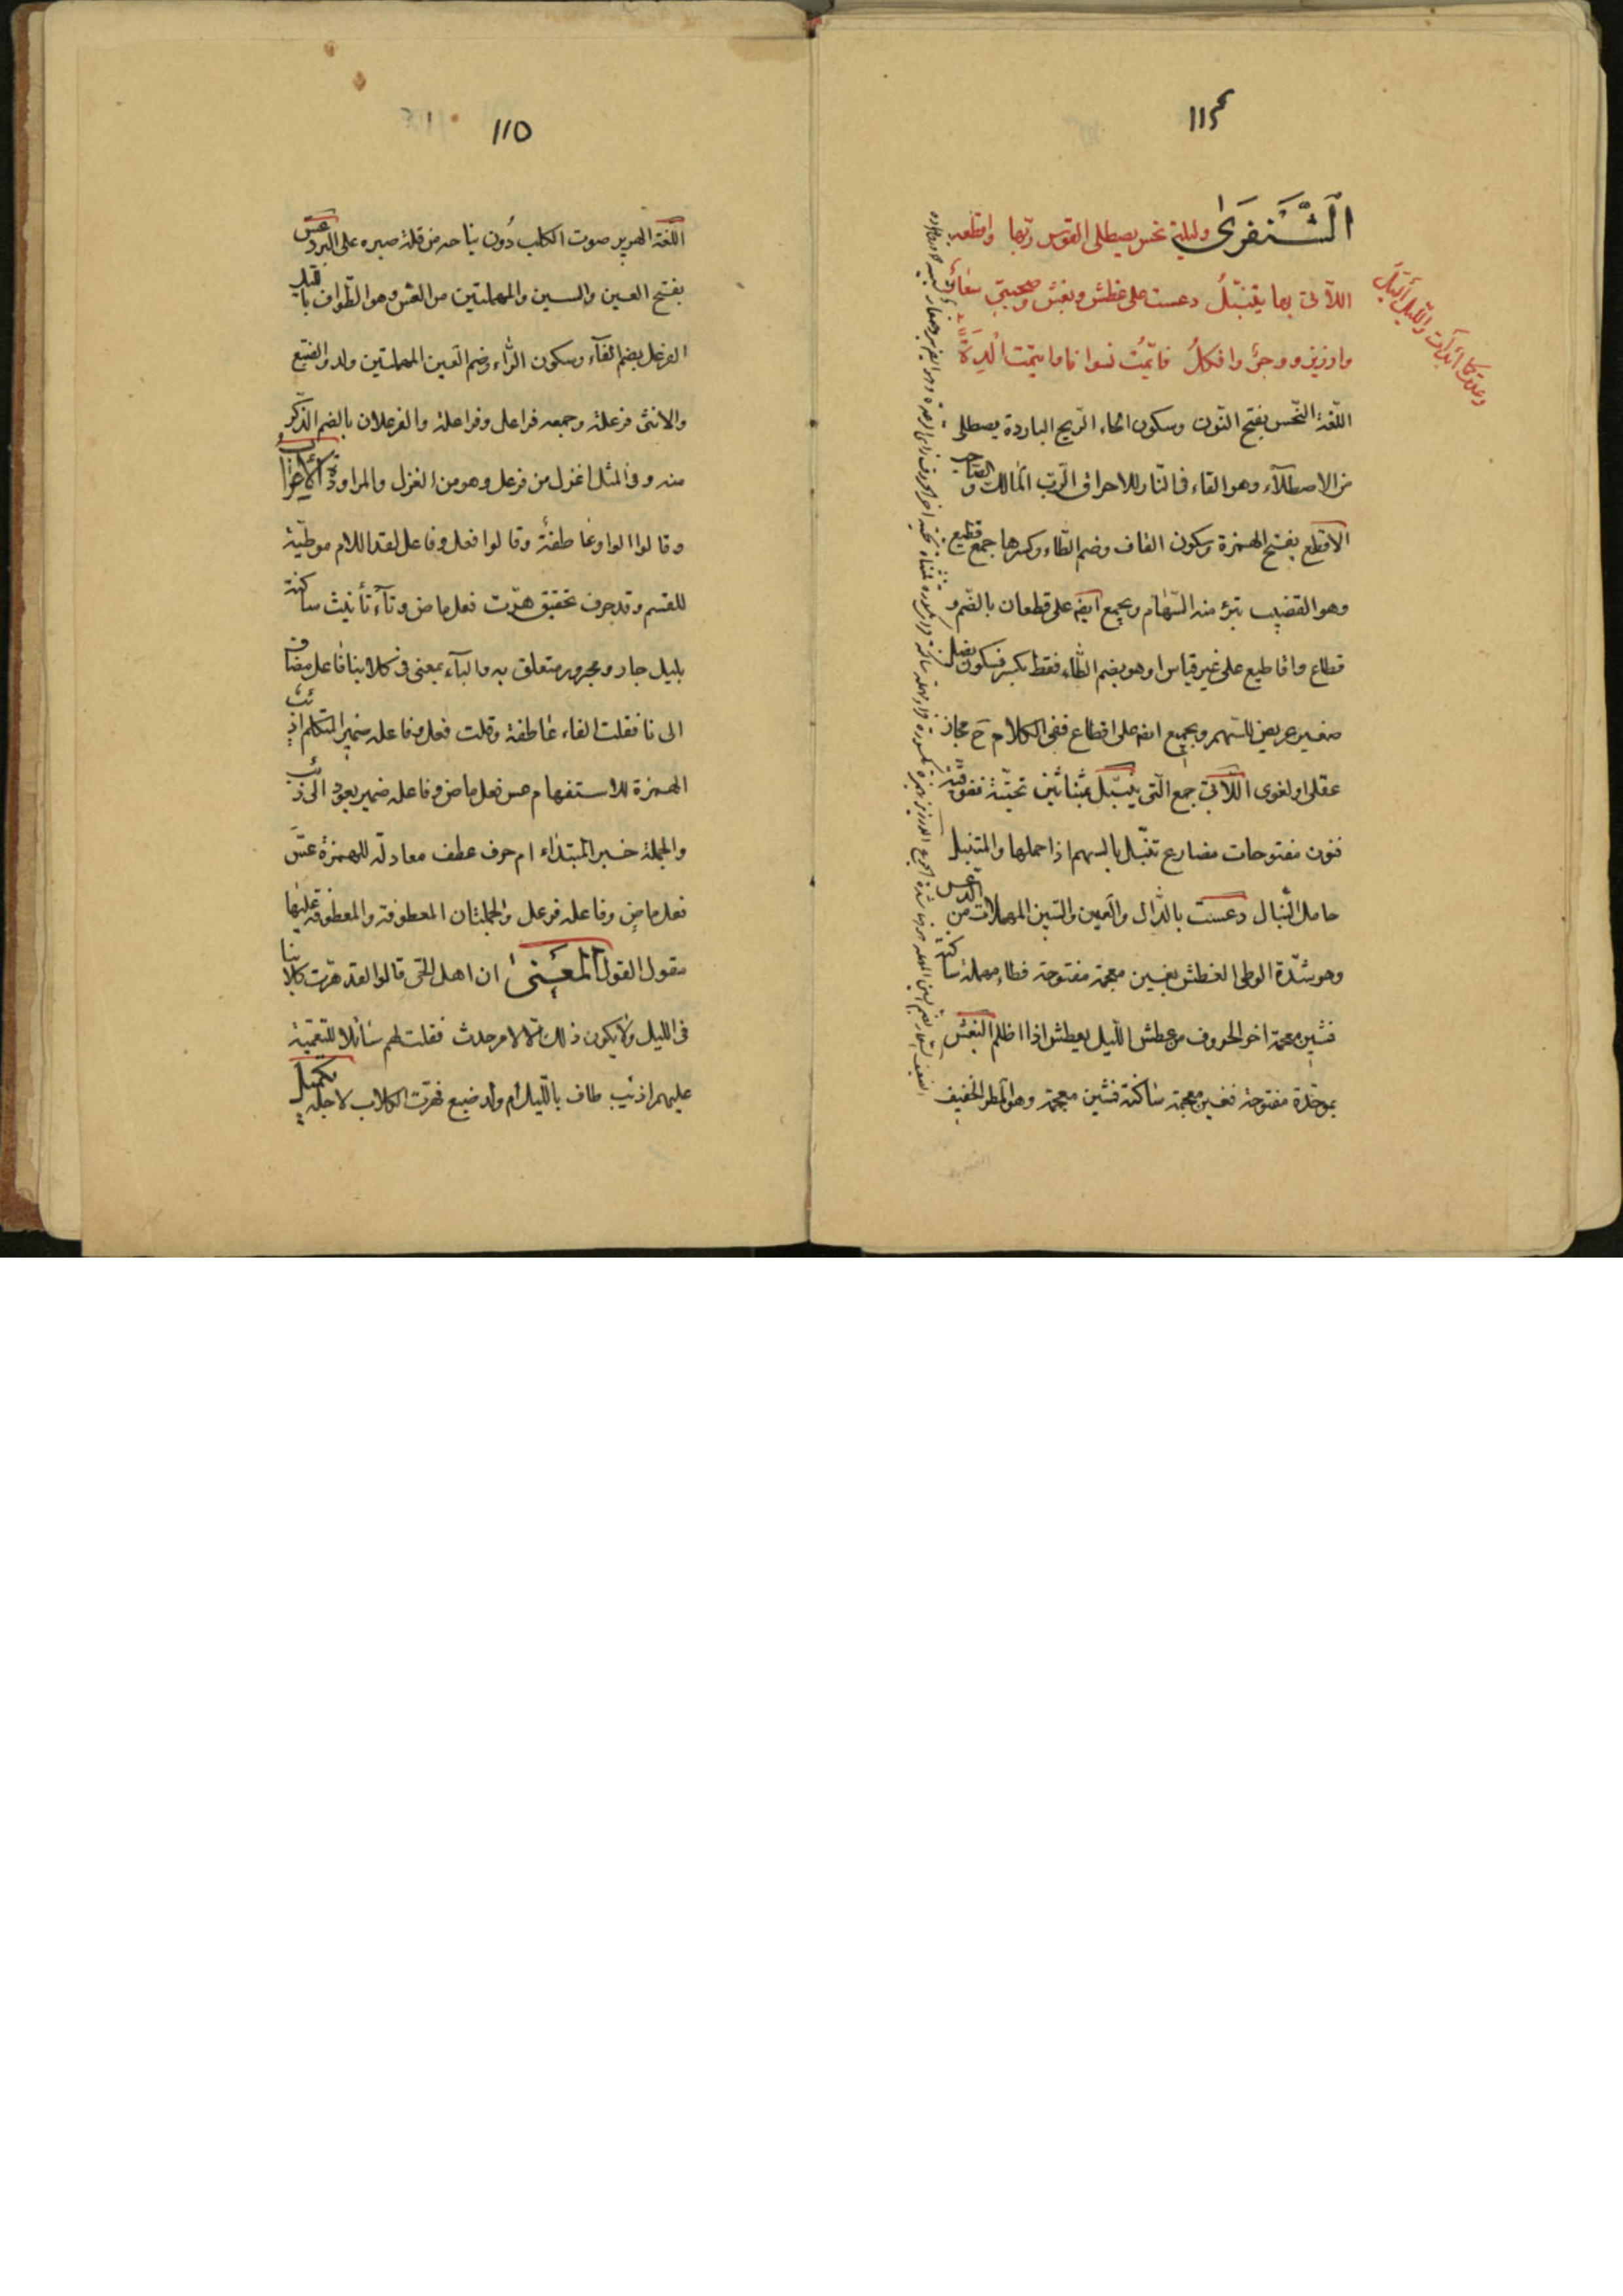 ١١٤
الشنفرى وليلة نحس يصطلى القوس ربها واقطعه
اللآتى بها يتنبّلُ دعست على غطش وبغش وصحبتى سعار
وارزيز ووجرٌ وافكلُ فايّمتُ نسوانا وايتمت اِلدةً
وعدت كما أبدأت والليل أليل
اللّغة النّحس بفتح النّون وسكون الحاء الرّيح الباردة يصطلى
من الاصطلآء وهو القاء فى النّار للاحراق الرّب المالك والصّاحب
الاقطع بفتح الهمزة وسكون القاف وضم الطّاء وكسرها جمع قطيع
وهو القضيب تبرٔ منه السّهام ويجمع ايضه على قطعان بالضّم و
قطاع واقاطيع على غير قياس او هو بضم الطّاء فقط بكسر فسكون نصل
صغير عريض للسّهم ويجمع ايضه على اقطاع ففى الكلام ح مجاز
عقلى او لغوى اللّآتى جمع الّتى يتنبّل بمثنّاتين تحتيّة ففوقيّة
فنون مفتوحات مضارع تنبّل بالسهم اذا حملها والمتنبل
حامل النّبال دعست بالدّال والعين والسّين المهملات من الدّعس
وهو شدّة الوطى الغطش بغين معجمة مفتوحة فطاء مهملة ساكنة
فشين معجمة اخر الحروف من غطش اللّيل يغطش اذا اظلم البغش
بموحّدة مفتوحة فغين معجمة ساكنة فشين معجمة وهو المطر الخفيف
١١٥
اللّغة الهرير صوت الكلب دُون نباحه من قلة صبره على البرد عسّ
بفتح العين والسين والمهملتين من العسّ وهو الطّواف بالليل
الفرعل بضم الفآء وسكون الرّاء وضم العين المهملتين ولد والضّبع
والانثى فرعلة وجمعه فراعل وفراعلة والفرعلان بالضم الذّكر
منه وفى المثل اغزل من فرعل وهو من الغزل والمراودة الأعراب
وقالوا الواو عاطفة وقالوا فعل وفاعل لقد اللام موطّئة
للقسم وقد حرف تحقيق هرّت فعل ماض وتآء تأنيث ساكنة
بليل جار ومجرور متعلق به والبآء بمعنى فى كلابنا فاعل مضاف
الى نا فقلت الفاء عاطفة وقلت فعل وفاعله ضمير المتكلم اذئب
الهمزة للاستفهام عس فعل ماض وفاعله ضمير يعود الى ذئب
والجملة خبر المبتداء ام حرف عطف معادلة للهمزة عسّ
فعل ماضٍ وفاعله فرعل والجملتان المعطوفة والمعطوفة عليها
مقول القول المعنى ان اهل الحّى قالوا لقد هرّت كلابنا
فى الليل ولا يكون ذلك الّا لامر حدث فقلت لهم سائلا للتعمية
عليهم اذئب طاف باللّيل أم ولد ضبع فهرّت الكلاب لاجله تكميل